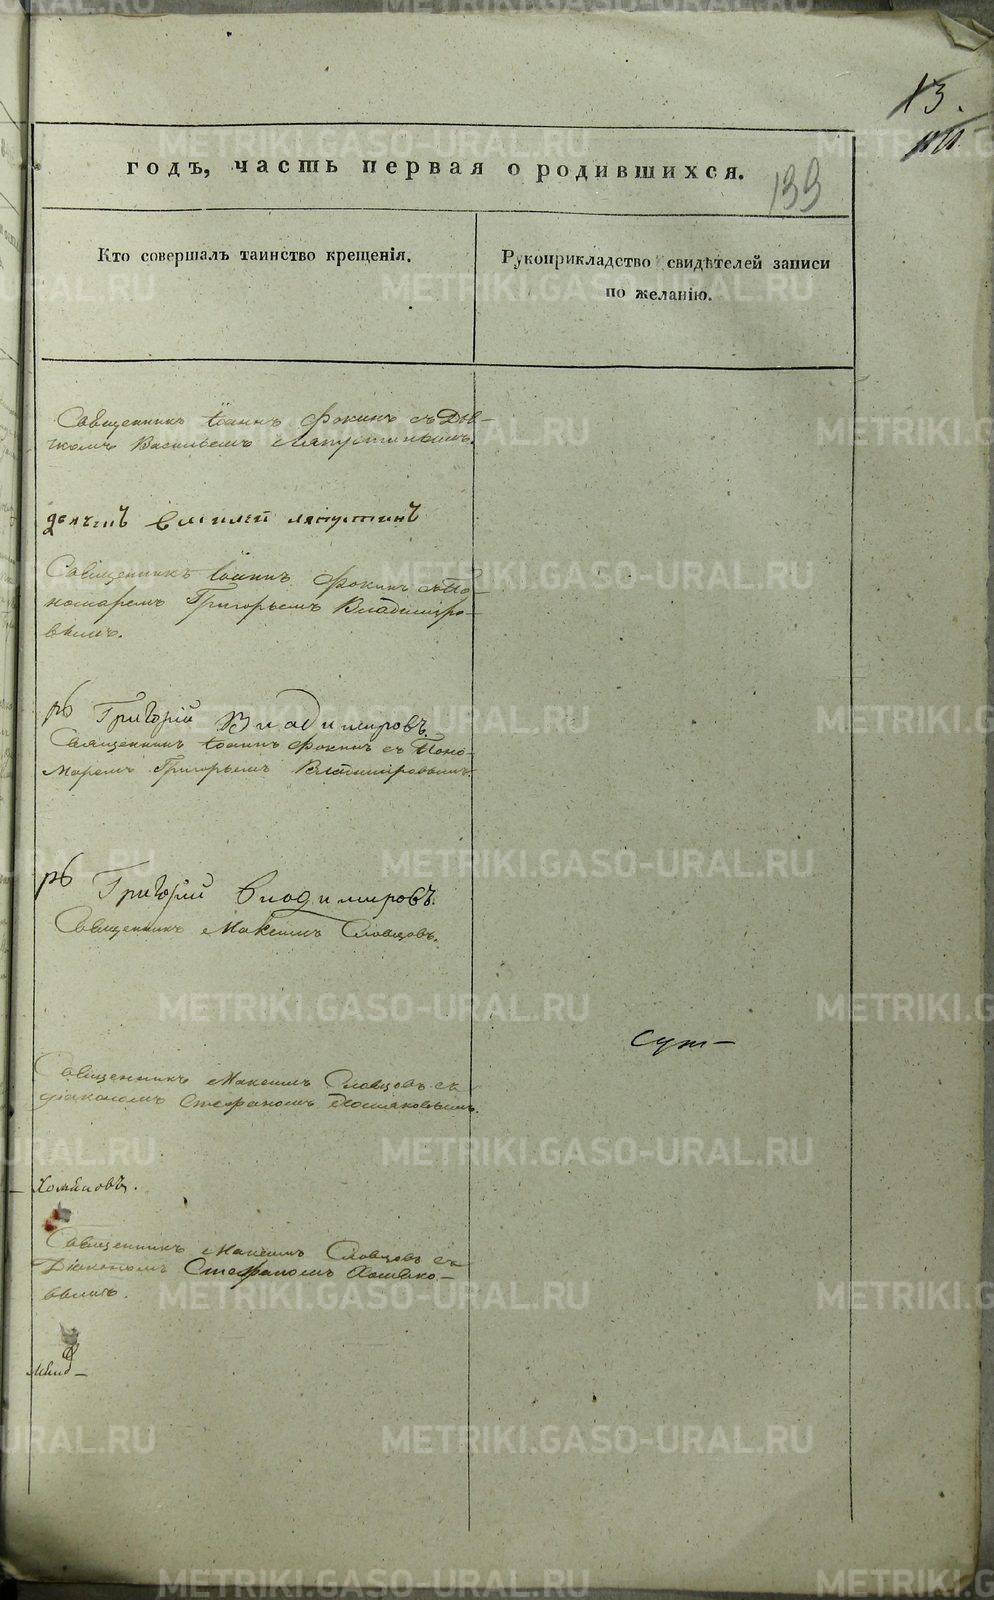 13.
133
годъ, часть первая о родившихся.
Кто совершалъ таинство крещенія.
Рукоприкладство свидѣтелей записи
по желанію.
Священникъ Іоаннъ Фокинъ съ Дья-
чкомъ Васильемъ Ляпустинымъ.
дьячекъ василей ляпустинъ
Священникъ Іоаннъ Фокинъ съ По-
номаремъ Григорьемъ Владиміро-
вымъ.
Григорій Владимировъ
Священникъ Іоаннъ Фокинъ съ Поно-
маремъ Григорьемъ Владиміровымъ.
Григорій Владимировъ.
Священникъ Максимъ Словцовъ.
Священникъ Максимъ Словцовъ съ
діакономъ Стефаномъ Хомяковымъ.
Хомяковъ.
Священникъ Максимъ Словцовъ съ
Діакономъ Стефаномъ Хомяко-
вымъ.
METRIKI.GASO-URAL.RU